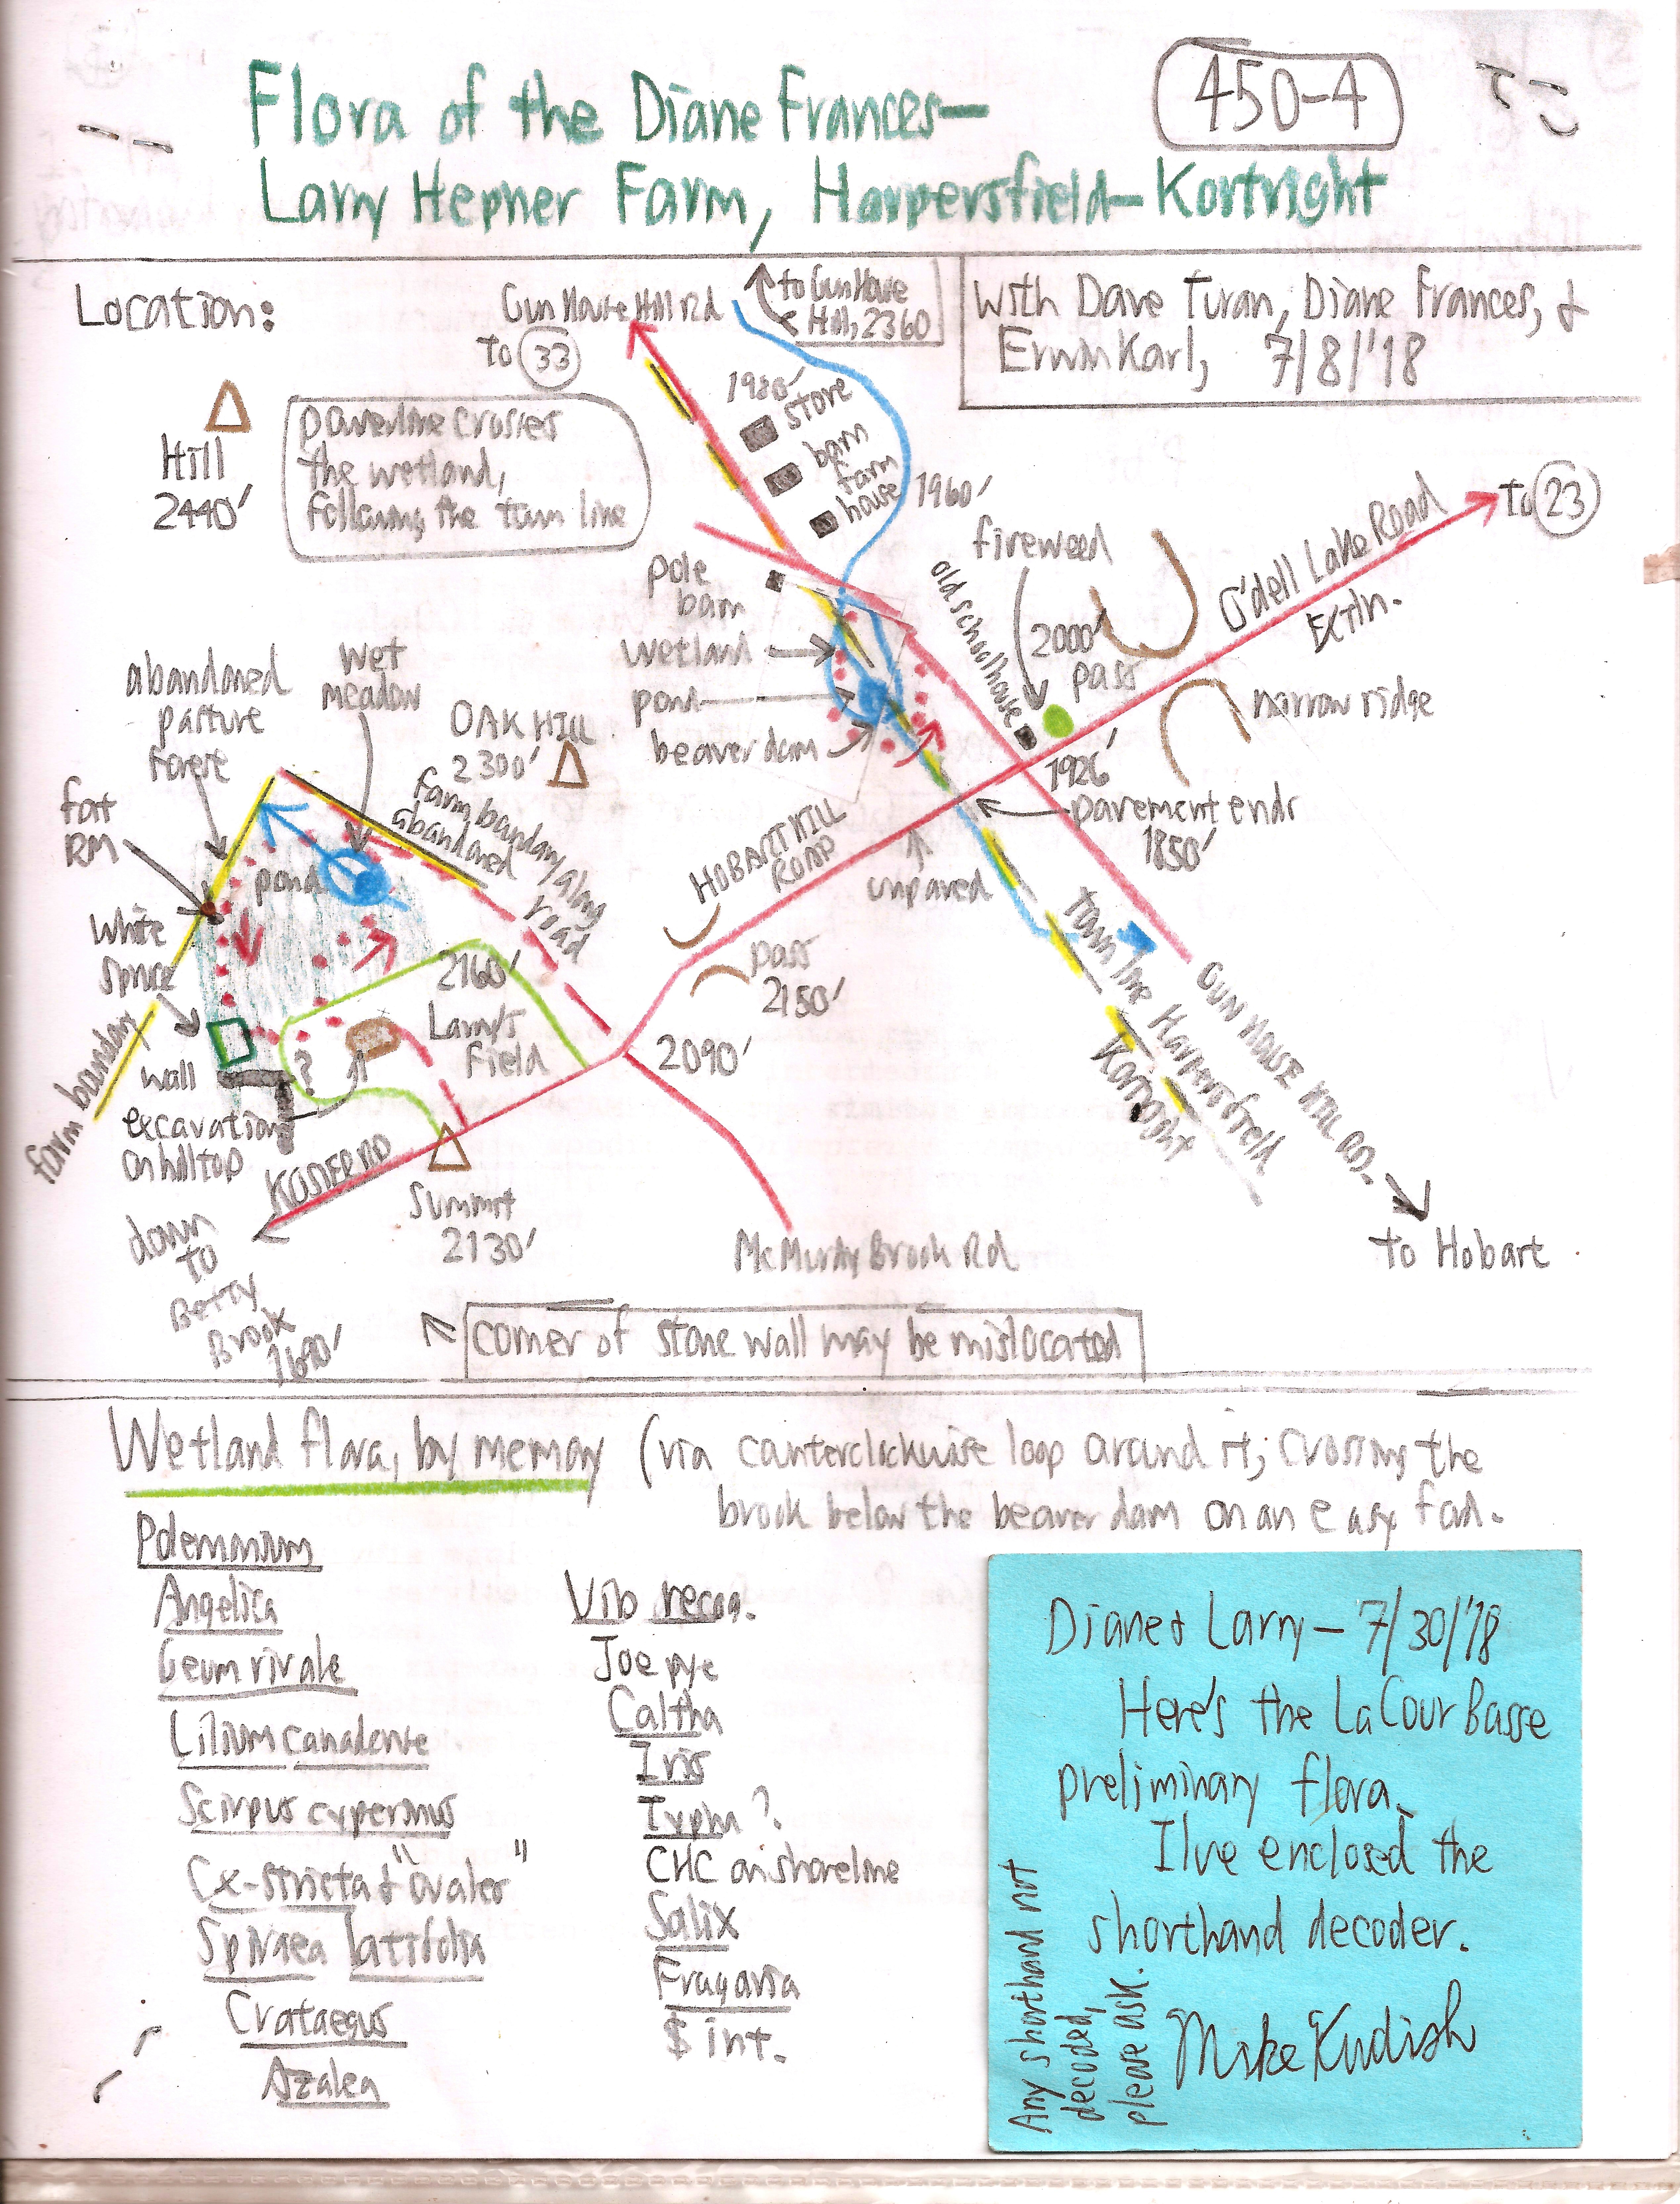 Flora of the Diane Frances-
Larry Hepner Farm, Harpersfield-Kortright
450-4
Location:
with Dave Turan, Diane Frances, &
Erwin Karl, 7/8/'18
Gun House Hill Rd
to 33
to Gun House
Hill, 2360
Hill
2440'
powerline crosses
the wetland,
following the town line
1980'
store
barn
farm
house
1960'
pole
barn
wetland
pond
beaver dam
old schoolhouse
fireweed
2000'
pass
Odell Lake Road
Extn.
to 23
narrow ridge
1926'
pavement ends
1850'
unpaved
abandoned
pasture
forest
wet
meadow
OAK HILL
2300'
farm boundary along
abandoned
road
fat
RM
pond
white
spruce
HOBART HILL
ROAD
pass
2150'
2160'
Larry's
field
2090'
town line Harpersfield
Kortright
GUN HOUSE HILL RD.
to Hobart
farm boundary
wall
?
excavation
on hilltop
KOSIER RD
down
to
Betty
Brook
1690'
summit
2130'
McMurdy Brook Rd
corner of stone wall may be mislocated
Wetland flora, by memory (via counterclockwise loop around it; crossing the
brook below the beaver dam on an easy ford.
Polemonium
Angelica
Geum rivale
Lilium canadense
Scirpus cyperinus
Cx-stricta & "ovales"
Spiraea latifolia
Crataegus
Azalea
Vib recog.
Joe pye
Caltha
Iris
Typha ?
CHC on shoreline
Salix
Fragaria
$ int.
Diane & Larry - 7/30/'18
Here's the La Cour Basse
preliminary flora.
I've enclosed the
shorthand decoder.
Mike Kudish
Any shorthand not
decoded,
please ask.